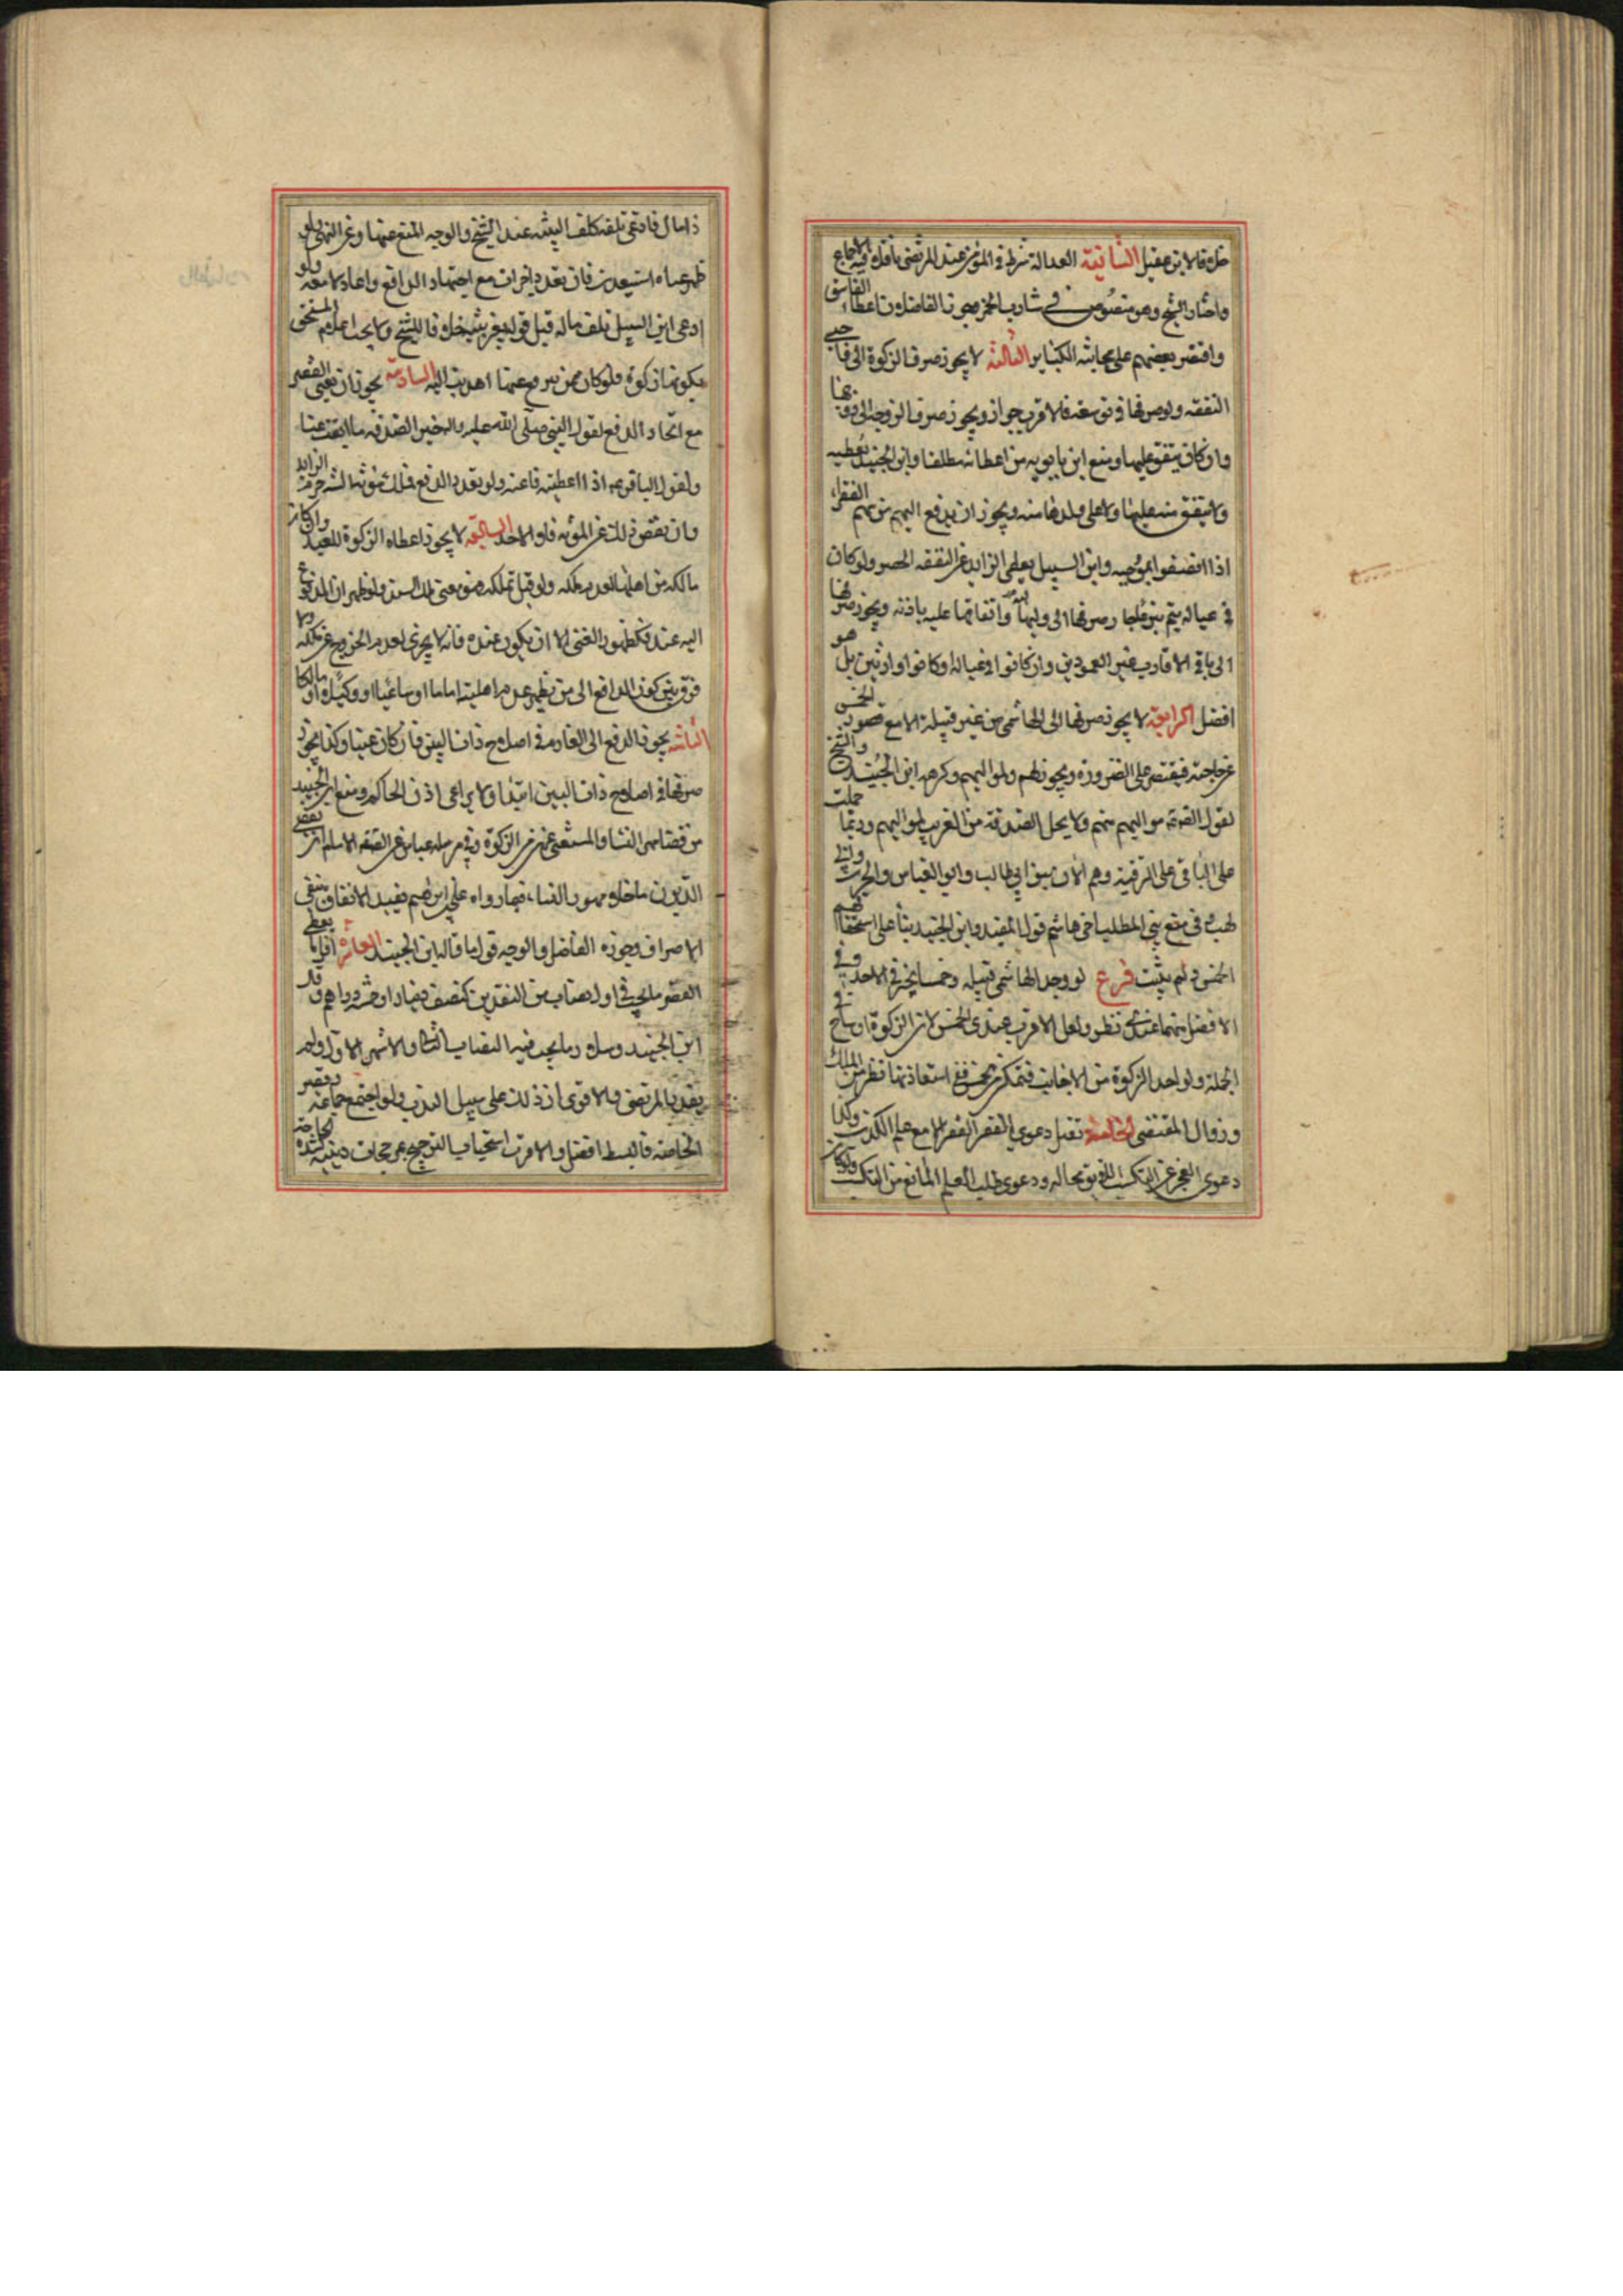 خلافا لابن عقيل الثانية العدالة شرط في المؤمن عند المرتضى ناقلا فيه الاجماع
واختاره الشيخ وهو منصوص في شارب الخمر وجوز الفاضلان اعطاء الفاسق
واقتصر بعضهم على مجانبة الكبائر الثالثة لا يجوز صرف الزكوة الى واجبي
النفقه ولو صرفها في توسعته فالاقرب جوازه ويجوز صرف الزوجة الى زوجها
وان كان ينفق عليها ومنع ابن بابويه من اعطائه مطلقا وابن الجنيد يعطيه
ولا ينفق منه عليها ولا على ولدها منه ويجوز ان يدفع اليهم من سهم الفقراء
اذا اتصفوا بموجبه وابن السبيل يعطى الزايد عن النفقه الحضر ولو كان
في عياله يتيم تبرعا جاز صرفها الى وليها وانفاقها عليه باذنه ويجوز صرفها
الى باقي الاقارب غير العمودين وان كانوا في عياله او كانوا وارثين بل هو
افضل الرابعة لا يجوز صرفها الى الهاشمي من غير قبيله الا مع قصور الخمس
عن حاجته فيقتصر على الضرورة ويجوز لهم ولمواليهم وكرهه ابن الجنيد والشيخ
لقول الص مواليهم منهم ولا يحل الصدقة من الغريب لمواليهم وربما حملت
على الباقي على الرقية وهم الان بنو ابي طالب والعباس والحرث وابي
لهب وفي منع بني المطلب اخي هاشم قول للمفيد وابن الجنيد بناء على استحقاقهم
الخمس ولم يثبت فرع لو وجد الهاشمي قبيله وخمسا يخير في الاخذ وفي
الافضل منهما عندي نظر ولعل الاقرب عندي الخمس لان الزكوة اوساخ في
الجملة ولو اخذ الزكوة من الاجانب فتمكن من خمس ففي استعادتها نظر من الملك
وزوال المقتضى الخامسة تقبل دعوى الفقر الفقراء مع علم الكذب وكذا
دعوى العجز عن التكسب اللايق بحاله ودعوى طلب العلم المانع من التكسب ولو كان
ذا مال فادعى تلفه كلف البينه عند الشيخ والوجه المنع عنها وغير المتهم ولو
ظهر غناه استعيدت فان تعذر اجزات مع اجتهاد الدافع واعاد لا معه ولو
ادعى ابن السبيل تلف ماله قبل قوله بغير بينه خلافا للشيخ ولا يجب اعلام المستحق
بكونها زكوة ولو كان ممن يترفع عنها اهديت اليه السادسة يجوز ان يغنى الفقير
مع اتحاد الدفع لقول النبي صلى الله عليه واله خير الصدقه ما ابقت غنا
ولقول الباقر ع اذا اعطيته فاغنه ولو تعدد الدفع فملك مؤنة السنه حرم الزايد
وان نقص ذلك عن المؤنه فلو الاخذ السابعة لا يجوز اعطاء الزكوة للعبد وان كان
مالكه من اهلها لعدم ملكه ولو قيل تملكه فهو بغنى مالك السيد ولو ظهر ان المدفوع
اليه عبد فكظهور الغنى الا ان يكون عبده فانه لا يجزي لعدم الخروج عن ملكه ولا
فرق بين كون الدافع الى من يظهر عدم اهليته اماما او ساعيا او وكيلا او مالكا
الثامنة يجوز الدفع الى الغارم في اصلاح ذات البين وان كان غنيا وكذا يجوز
صرفها في اصلاح ذات البين ابتداء ولا يراعى اذن الحاكم ومنع ابن الجنيد
من قضا مهر النساء والمستغنى عنه من الزكوة وفي مرسله عباس عن الص الاسلام ان يقضى
الديون ما خلا مهور النساء فيما رواه علي بن ابراهيم تقييد الانفاق ينفي
الاسراف وجوزه الفاضل والوجه قول ما قاله ابن الجنيد العاشرة اقل ما يعطى
الفقير ما يجب في اول نصاب من النقدين كنصف دينار او خمسة دراهم وقال
ابن الجنيد وسلار ما يجب فيه النصاب الثاني والاشهر الاول ولم
يقدر المرتضى والاقوى ان ذلك على سبيل الندب ولو اجتمع جماعه وقصر
الحاصل فالبسط افضل والاقرب استحباب الترجيح بمرجحات دينيه كشدة الحاجة